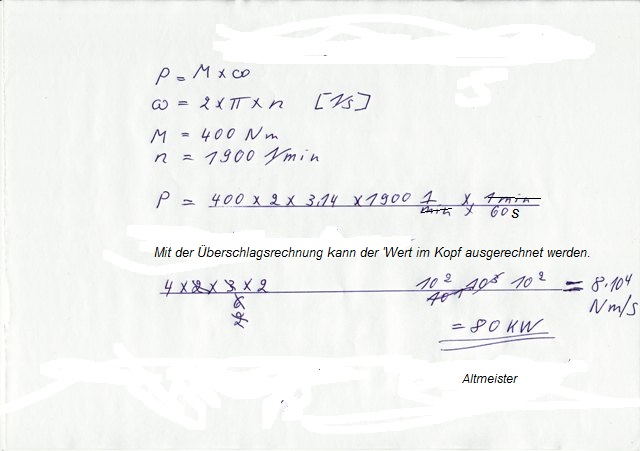 P = M x ω
ω = 2 x π x n [1/s]
M = 400 Nm
n = 1900 1/min
P = 400 x 2 x 3,14 x 1900 1/min x 1 min/60 s
Mit der Überschlagsrechnung kann der 'Wert im Kopf ausgerechnet werden.
4 x 2 x 3 x 2 10² 10³ 10² = 8·10⁴
6 10¹ Nm/s
= 80 KW
Altmeister